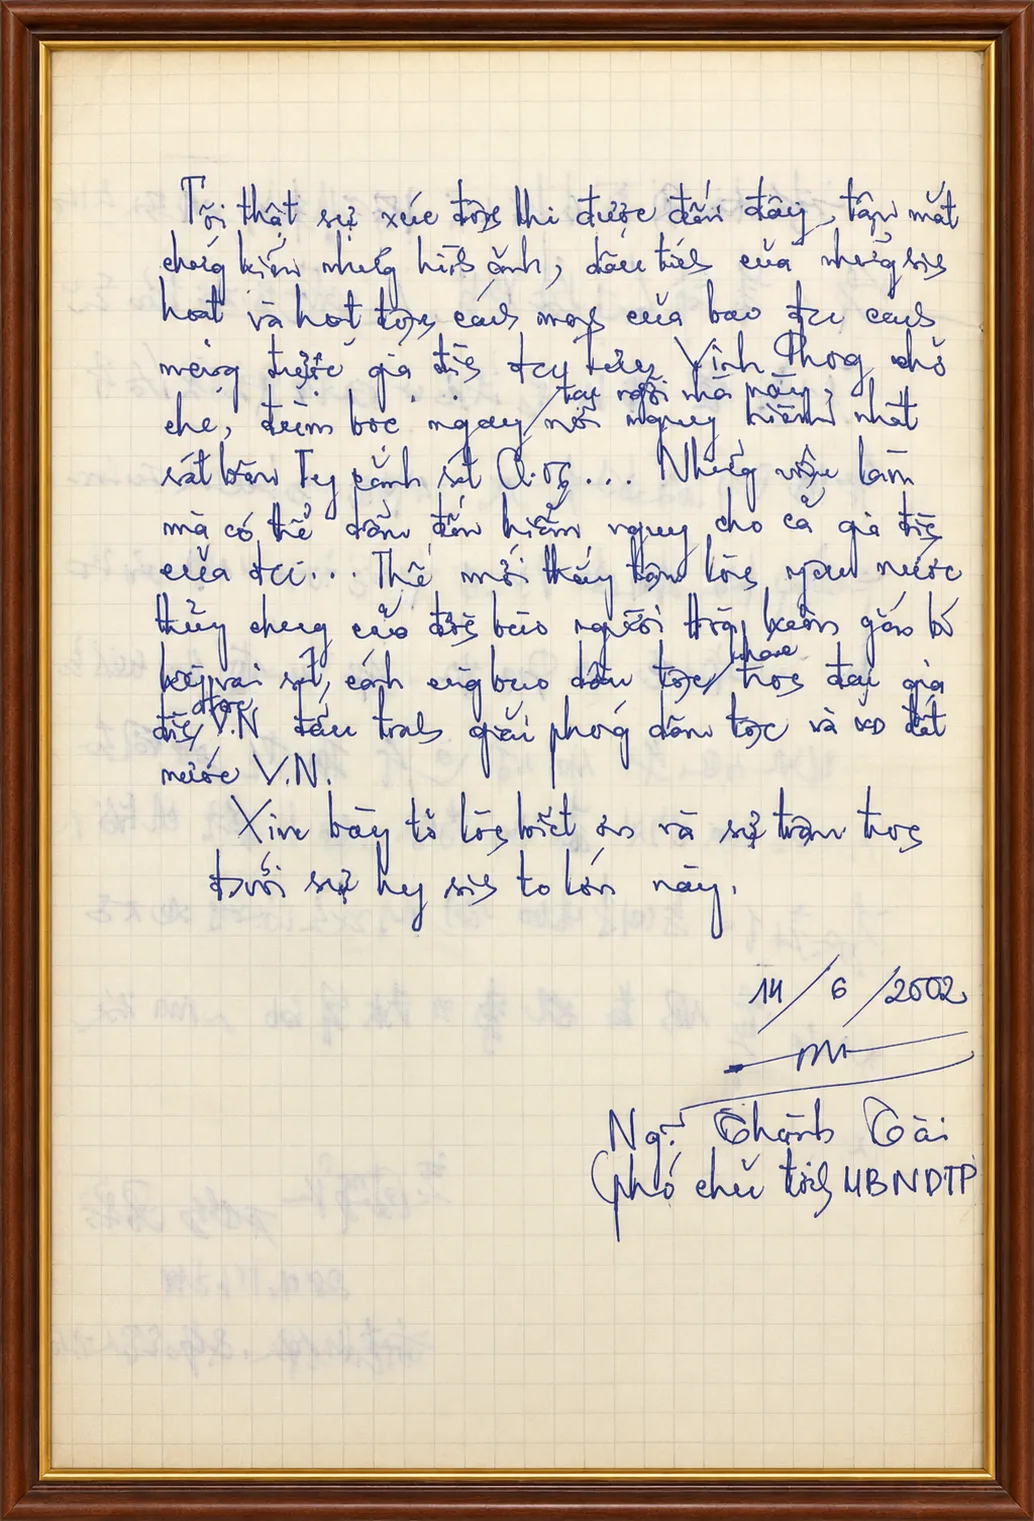 Tôi thật sự xúc động khi được đến đây, tận mắt
chứng kiến những hình ảnh, dấu tích của những sinh
hoạt và hoạt động cách mạng của bao đ/c cách
mạng được gia đình đ/c Vinh Phong chở
che, đùm bọc ngay tại ngôi nhà này, nơi nguy hiểm nhất
sát bên Ty cảnh sát Q.5... Những việc làm
mà có thể dẫn đến hiểm nguy cho cả gia đình
của đ/c... Thế mới thấy tấm lòng yêu nước
thủy chung của đồng bào người Hoa, luôn gắn bó
kề vai sát cánh cùng bao dân tộc khác trong đại gia
đình dtộc V.N đấu tranh giải phóng dân tộc và XD đất
nước V.N.
Xin bày tỏ lòng biết ơn và sự trân trọng
Đối với sự hy sinh to lớn này.
14/6/2002
Ng. Thành Tài
(phó chủ tịch UBNDTP